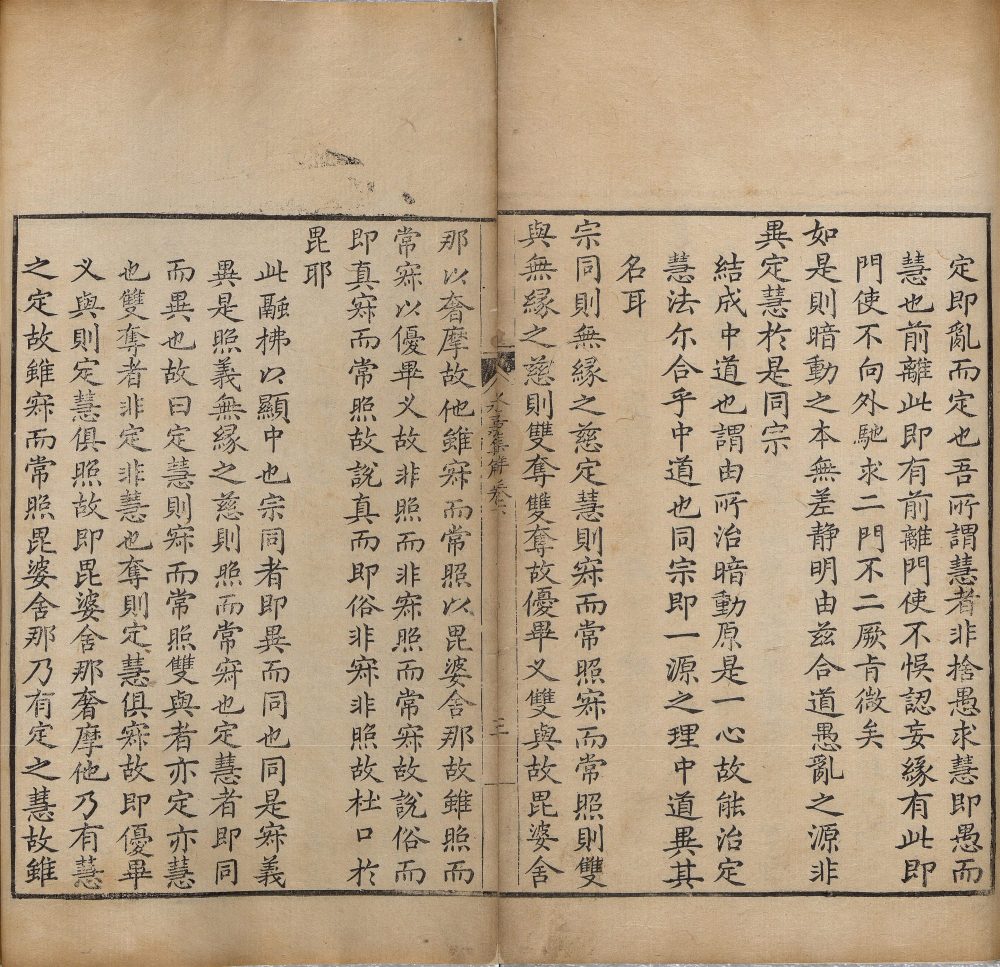 定即亂而定也吾所謂慧者非捨愚求慧即愚而
慧也前離此即有前離門使不悞認妄緣有此即
門使不向外馳求二門不二厥肯微矣
如是則暗動之本無差静明由兹合道愚亂之源非
異定慧於是同宗
結成中道也謂由所治暗動原是一心故能治定
慧法尔合乎中道也同宗即一源之理中道異其
名耳
宗同則無緣之慈定慧則㝥而常照㝥而常照則雙
與無緣之慈則雙奪雙奪故優畢叉雙與故毘婆舍
永嘉集解卷六
三
那以奢摩故他雖㝥而常照以毘婆舍那故雖照而
常㝥以優畢叉故非照而非㝥照而常㝥故說俗而
即真㝥而常照故說真而即俗非㝥非照故杜口於
毘耶
此融拂以顯中也宗同者即異而同也同是㝥義
異是照義無緣之慈則照而常㝥也定慧者即同
而異也故曰定慧則㝥而常照雙與者亦定亦慧
也雙奪者非定非慧也奪則定慧俱㝥故即優畢
叉與則定慧俱照故即毘婆舍那奢摩他乃有慧
之定故雖㝥而常照毘婆舍那乃有定之慧故雖